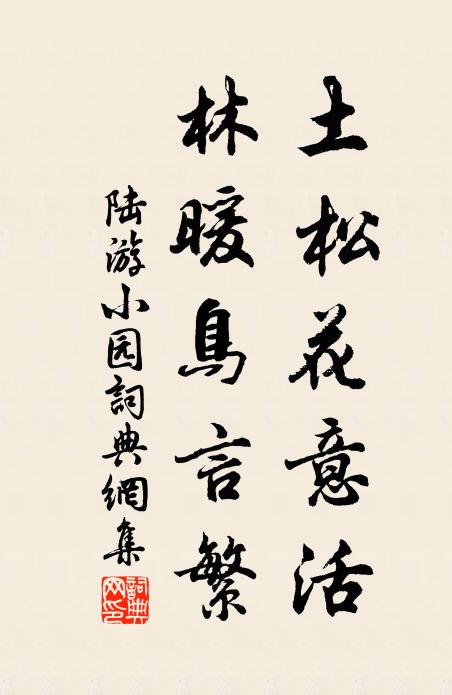 土松花意活
林暖鳥言繁
陆游小园詞典網集
詞典网印